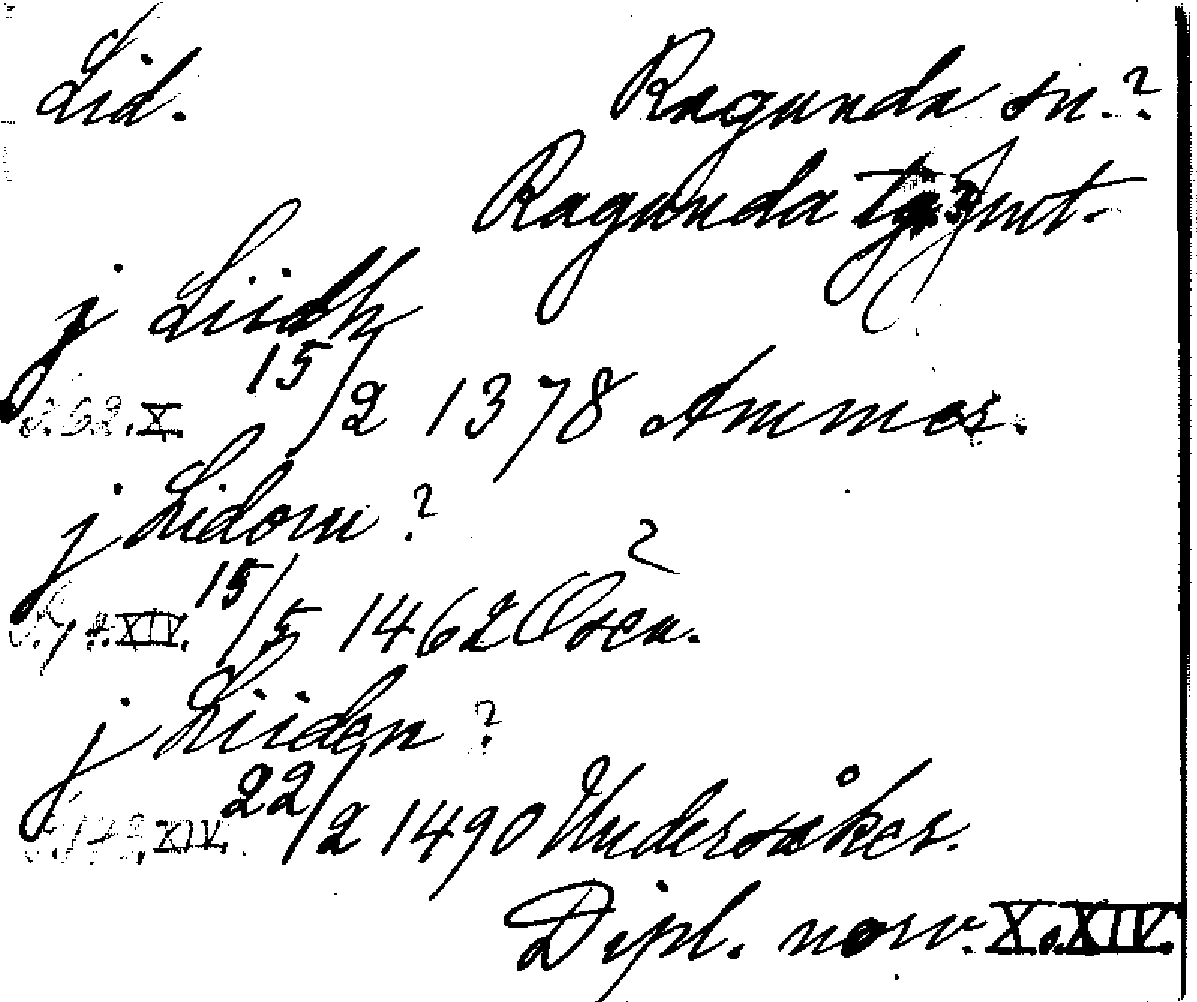 Lid. Ragunda sn.?
Ragunda tg. Jmt.
j Liidh
15/2 1378 Ammer.
s.62.X.
j Lidom ?
15/5 1462 Osen. ?
s.74.XIV.
j Liiden ?
22/2 1490 Undersåker.
XIV.
Dipl. norv. X.XIV.